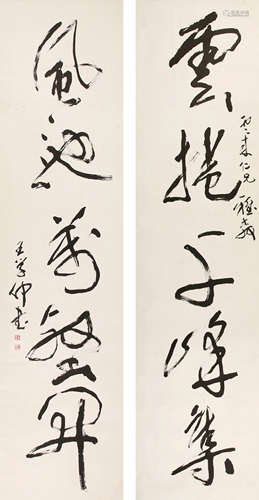 雲捲千峰集
仁兄 雅教
風馳萬壑開
王學仲書